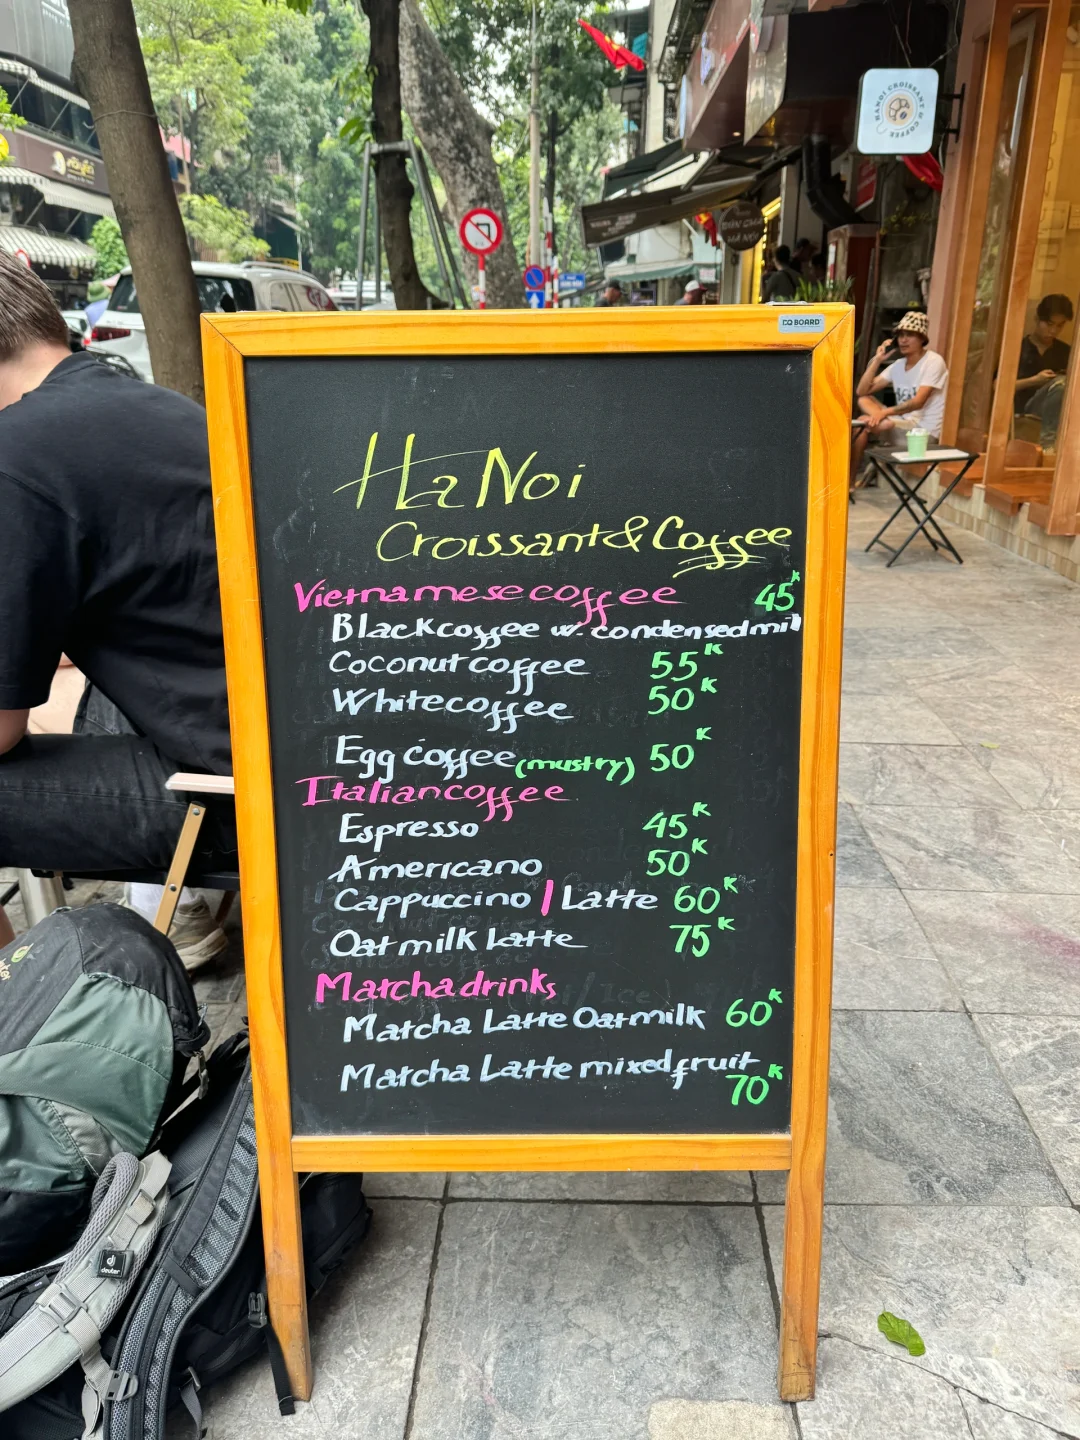 HANOI CROISSANT & COFFEE
BÚN CHẢ
HÀ NỘI
BOARD
HaNoi
Croissant & Coffee
Vietnamese coffee 45K
Black coffee w. condensed mil
Coconut coffee 55K
White coffee 50K
Egg coffee (must ry) 50K
Italian coffee
Espresso 45K
Americano 50K
Cappuccino / Latte 60K
Oat milk Latte 75K
Matcha drinks
Matcha Latte Oatmilk 60K
Matcha Latte mixed fruit
70K
deuter